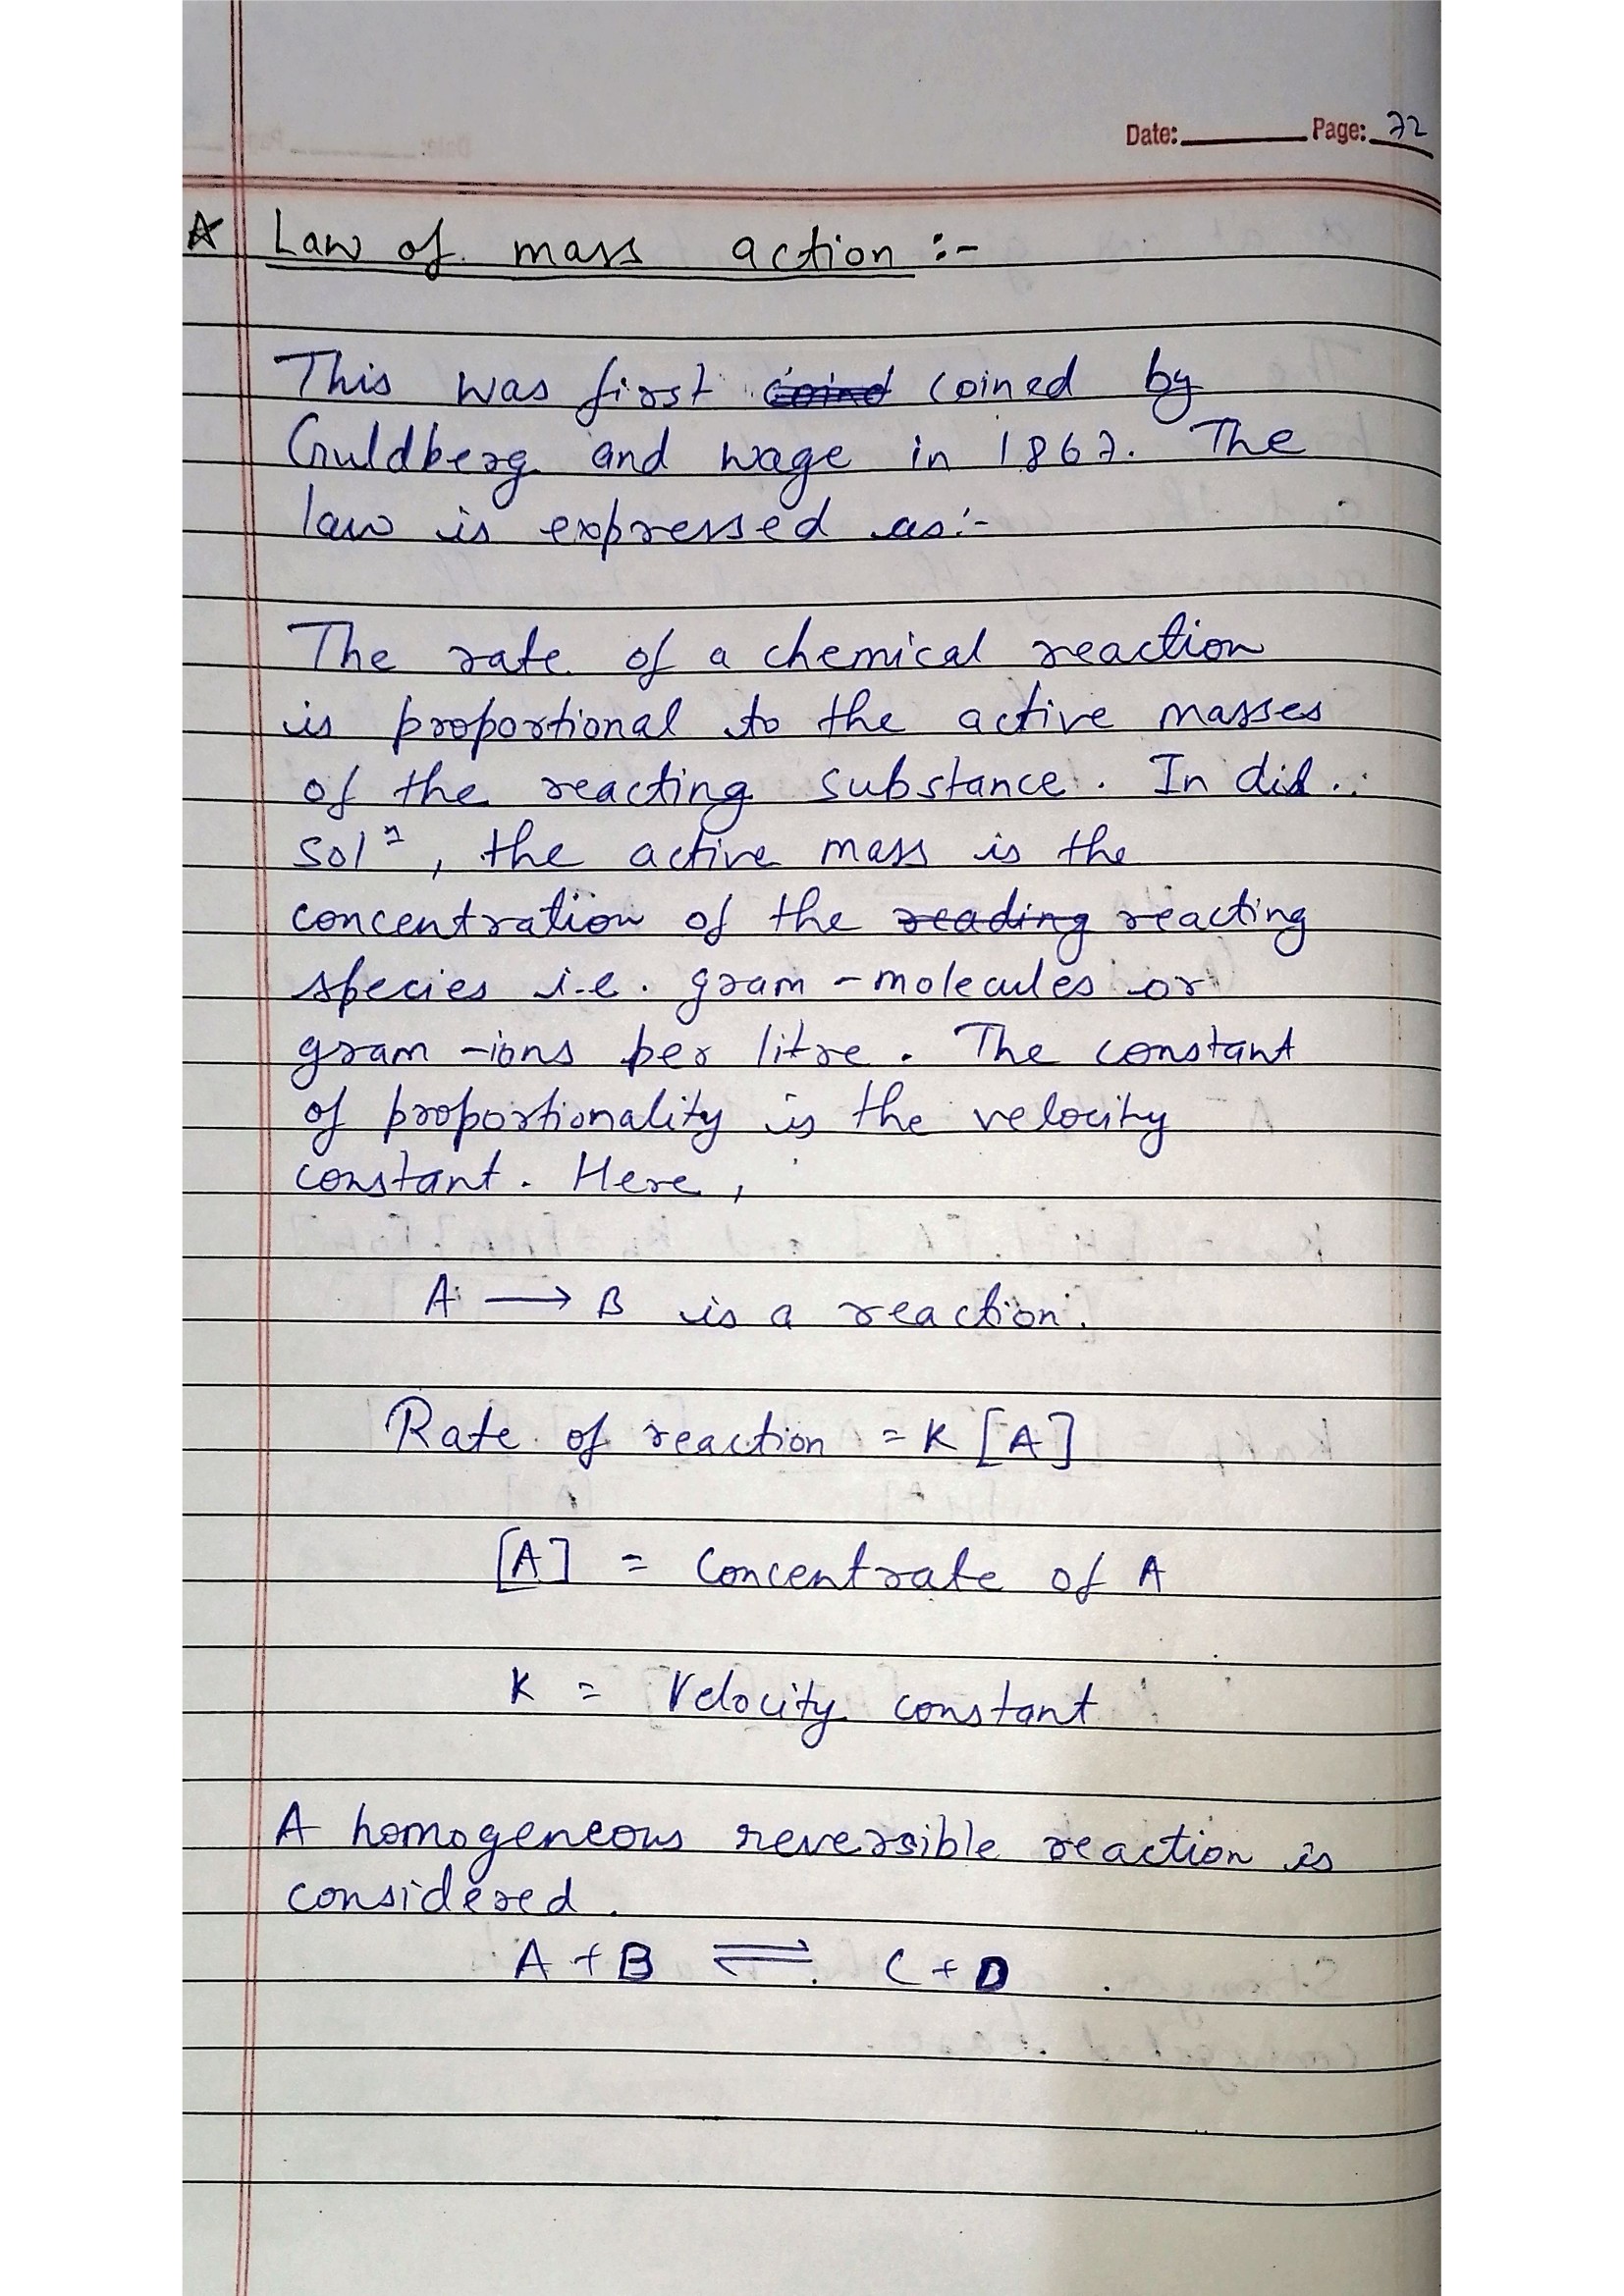 Date: Page: 72
Law of mass action :-
This was first coined by
Guldberg and wage in 1867. The
law is expressed as:-
The rate of a chemical reaction
is proportional to the active masses
of the reacting substance. In dil.
solⁿ, the active mass is the
concentration of the reading reacting
species i.e. gram - molecules or
gram - ions per litre. The constant
of proportionality is the velocity
constant. Here,
A ⟶ B is a reaction.
Rate of reaction = K [A]
[A] = Concentrate of A
K = Velocity constant
A homogeneous reversible reaction is
considered.
A + B ⇌ C + D